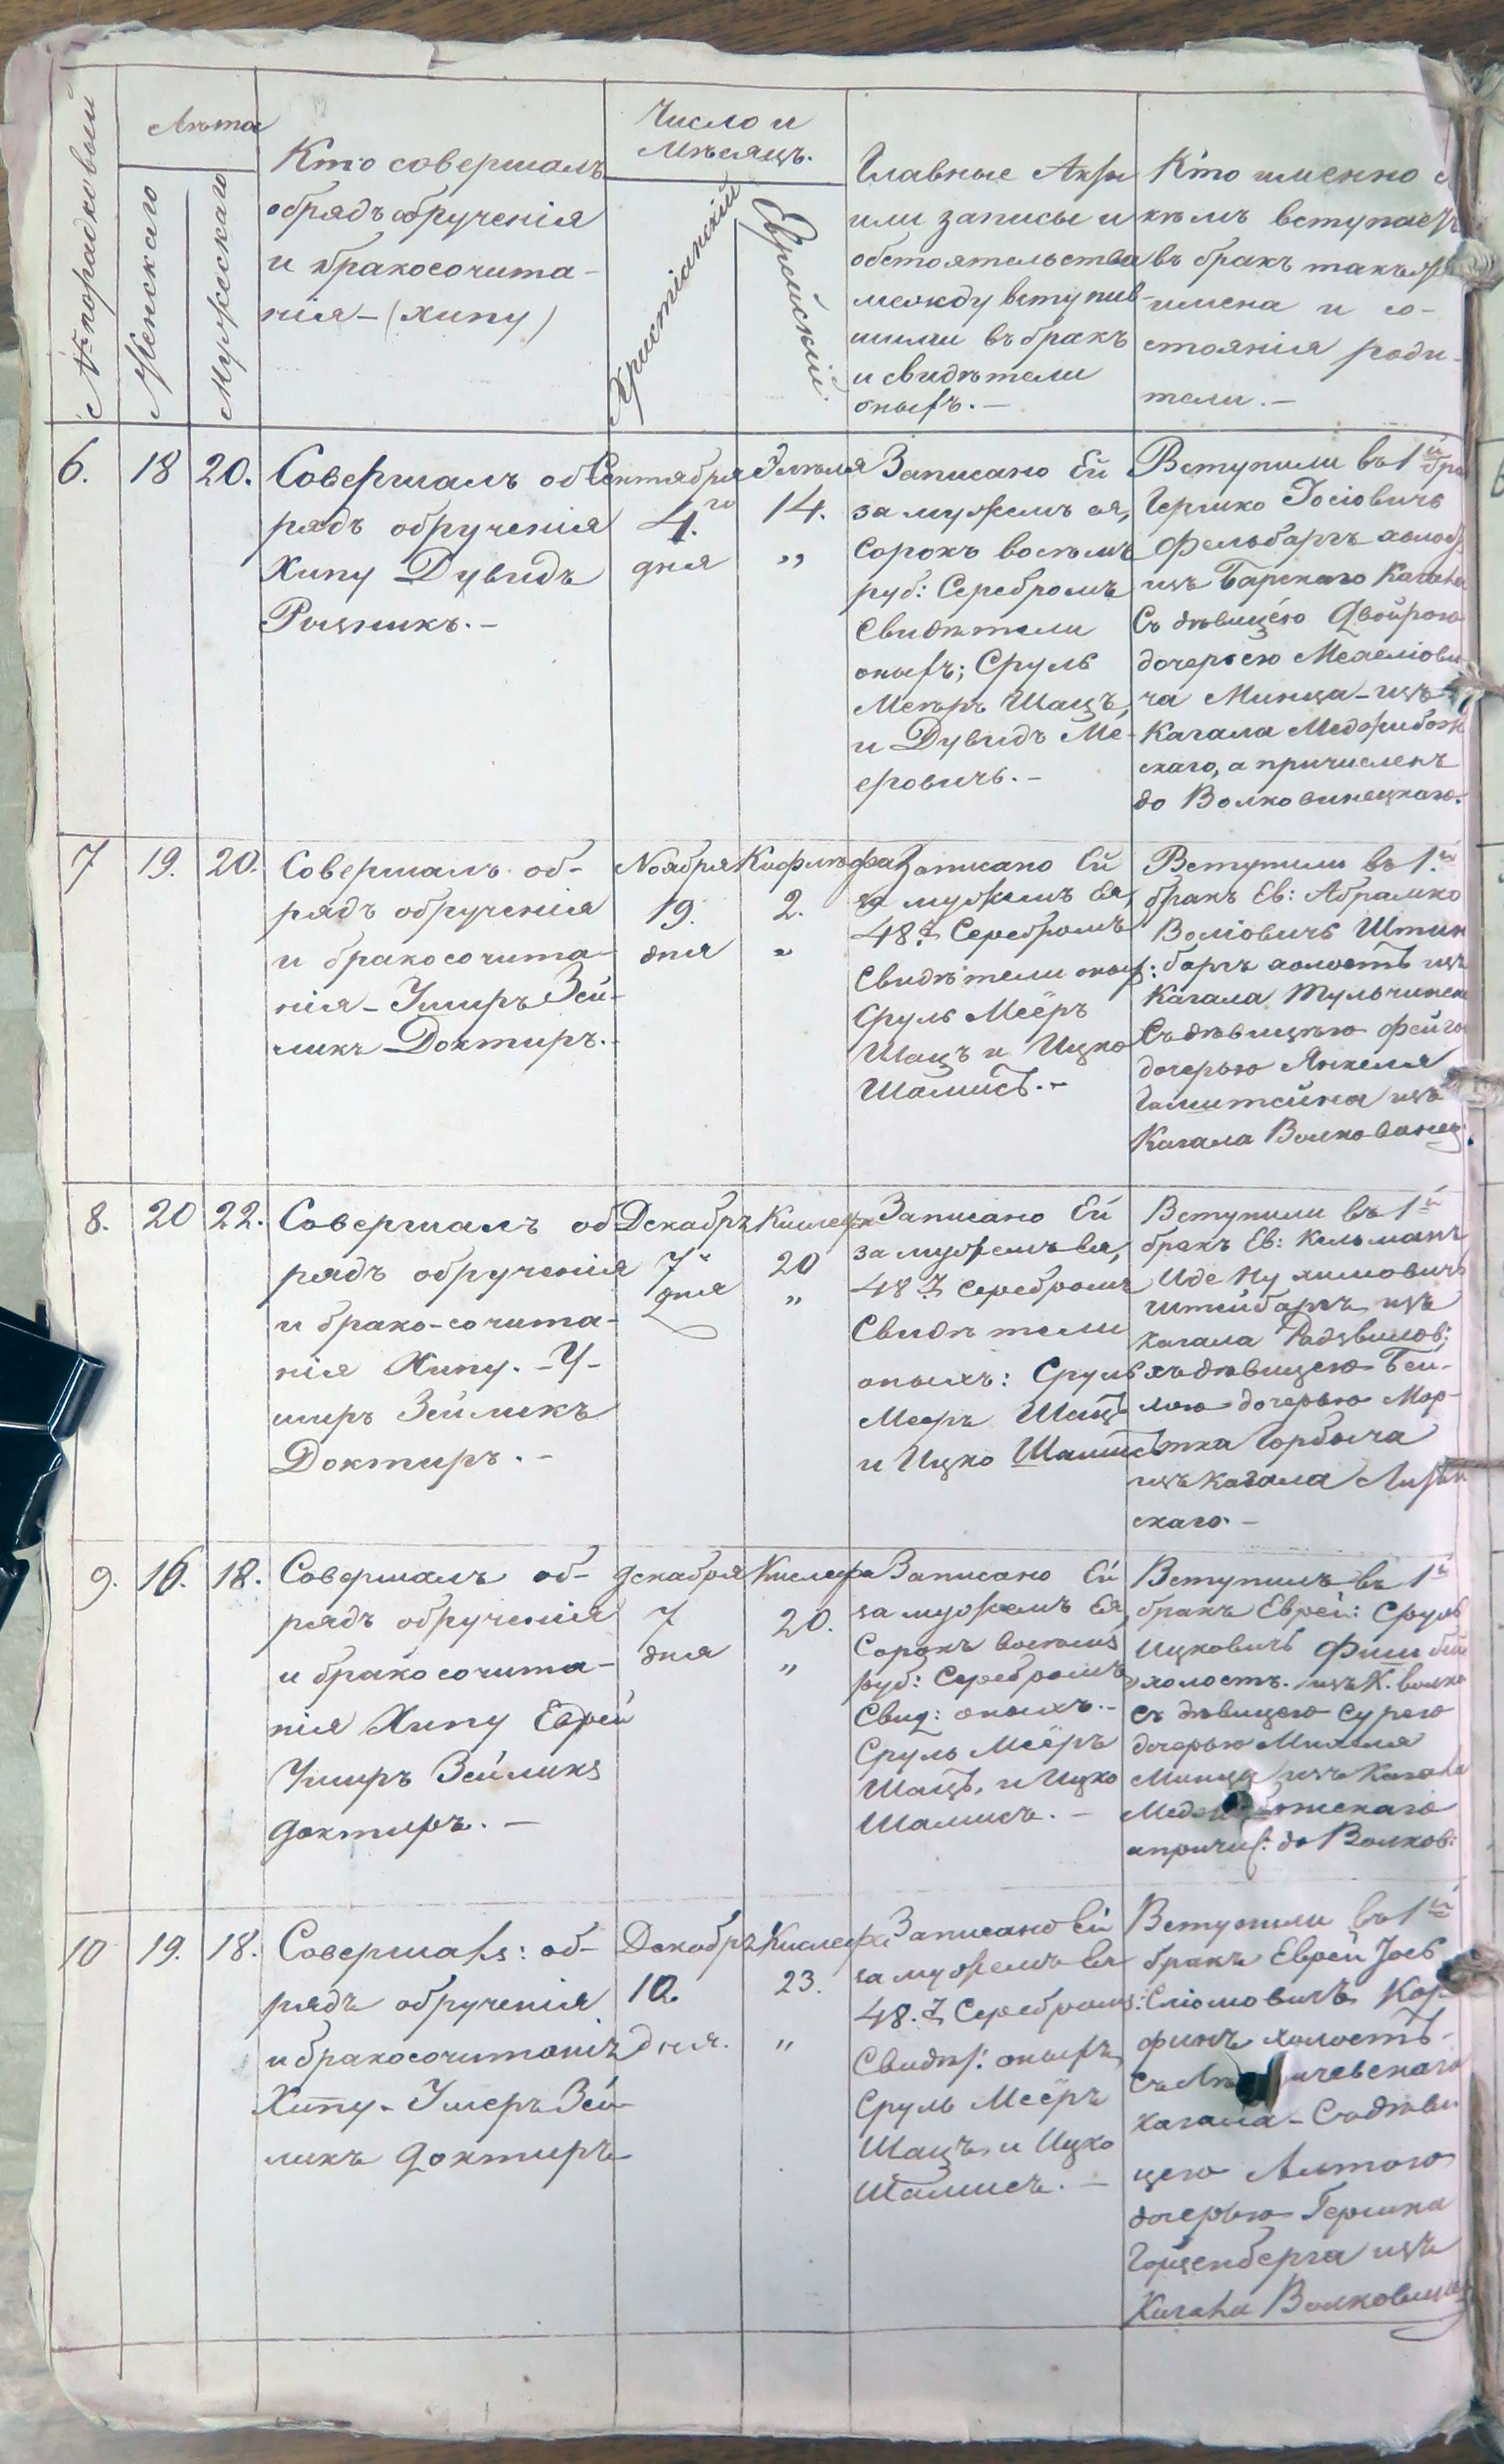 № порядковый
Лѣта
Женскаго
Мужескаго
Кто совершалъ
обрядъ обрученія
и бракосочита-
нія - (хипу)
Число и
Мѣсяцъ.
Христіанскій
Еврейскій
Главные Акты
или записы и
обстоятельства
между вступив-
шими въ бракъ
и свидѣтели
оныхъ. -
Кто именно с
кѣмъ вступаетъ
въ бракъ также
имена и со-
стоянія роди-
тели. -
6.
18
20.
Совершалъ об
рядъ обрученія
Хипу Дувидъ
Рошникъ. -
Сентября
4.го
дня
Элюля
14.
„
Записано Ей
за мужемъ ея,
Сорокъ восемъ
руб: Серебромъ
Свидѣтели
оныхъ; Сруль
Меѣръ Шацъ,
и Дувидъ Ме-
еровичъ. -
Вступили въ 1й бра
Гершко Іосіовичъ
Фельбаргъ холос
изъ Барскаго Кагала
Съ дѣвицею Двойрою
дочерьею Мехелiови
ча Минца - изъ
Кагала Меджибож
скаго, а причисленъ
до Волковинецкаго.
7
19.
20.
Совершалъ об-
рядъ обрученія
и бракосочита-
нія - Умиръ Зей-
ликъ Доктиръ. -
Ноября
19.
дня
2.
„
Записано Ей
за мужемъ Ея,
48 р. Серебромъ
Свидѣтели оных:
Сруль Меёръ
Шацъ и Ицко
Шамисъ. -
Вступили въ 1.й
бракъ Ев: Абрамко
Волiовичъ Штин
баргъ холостъ изъ
Кагала Тульчинск
Съ дѣвицею Фейго
дочерью Янкеля
изъ
Кагала Волковинец.
8.
20
22.
Совершалъ об
рядъ обрученія
и брако-сочита-
нія Хипу. - У-
миръ Зейликъ
Доктиръ. -
Декабръ
7
дня
20
„
Записано Ей
за мужемъ Ея,
48 р. Серебромъ
Свидѣтели
оныхъ: Сруль
Мееръ Шацъ
и Ицко Шамисъ
Вступили въ 1й
бракъ Ев: Кельманъ
Штейбаргъ изъ
кагала Радзвилов:
съ дѣвицею Бей-
лою дочерью Мор-
тка Горбыча
изъ кагала
скаго. -
9.
16.
18.
Совершалъ об-
рядъ обрученія
и бракосочита-
нія Хипу Еврей
Умиръ Зейликъ
Доктиръ. -
Декабря
7
дня
Кислефа
20.
„
Записано Ей
за мужемъ Ея,
Сорокъ восемъ
руб: Серебромъ
Свид: оныхъ. -
Сруль Меёръ
Шацъ, и Ицко
Шамисъ. -
Вступилъ въ 1й
бракъ Еврей: Сруль
Ицковичъ
холостъ. изъ К. волко
съ дѣвицею Сурею
дочерью Михеля
Минца изъ Кагала
апричис: до Волков:
10
19.
18.
Совершалъ: об-
рядъ обрученія
и бракосочитанія
Хипу - Умеръ Зей-
ликъ Доктиръ
Декабръ
10
дня.
Кислефа
23.
„
Записано Ей
за мужемъ Ея
48. р. Серебромъ:
Свидѣт: оныхъ
Сруль Меёръ
Шацъ, и Ицко
Шамисъ. -
Вступили въ 1й
бракъ Еврей Іось
Слiомовичъ Кор-
финъ холостъ -
кагала - Съ дѣви
цею Алтою
дочерью Гершка
Гойзенберга изъ
Кагала Волковинец